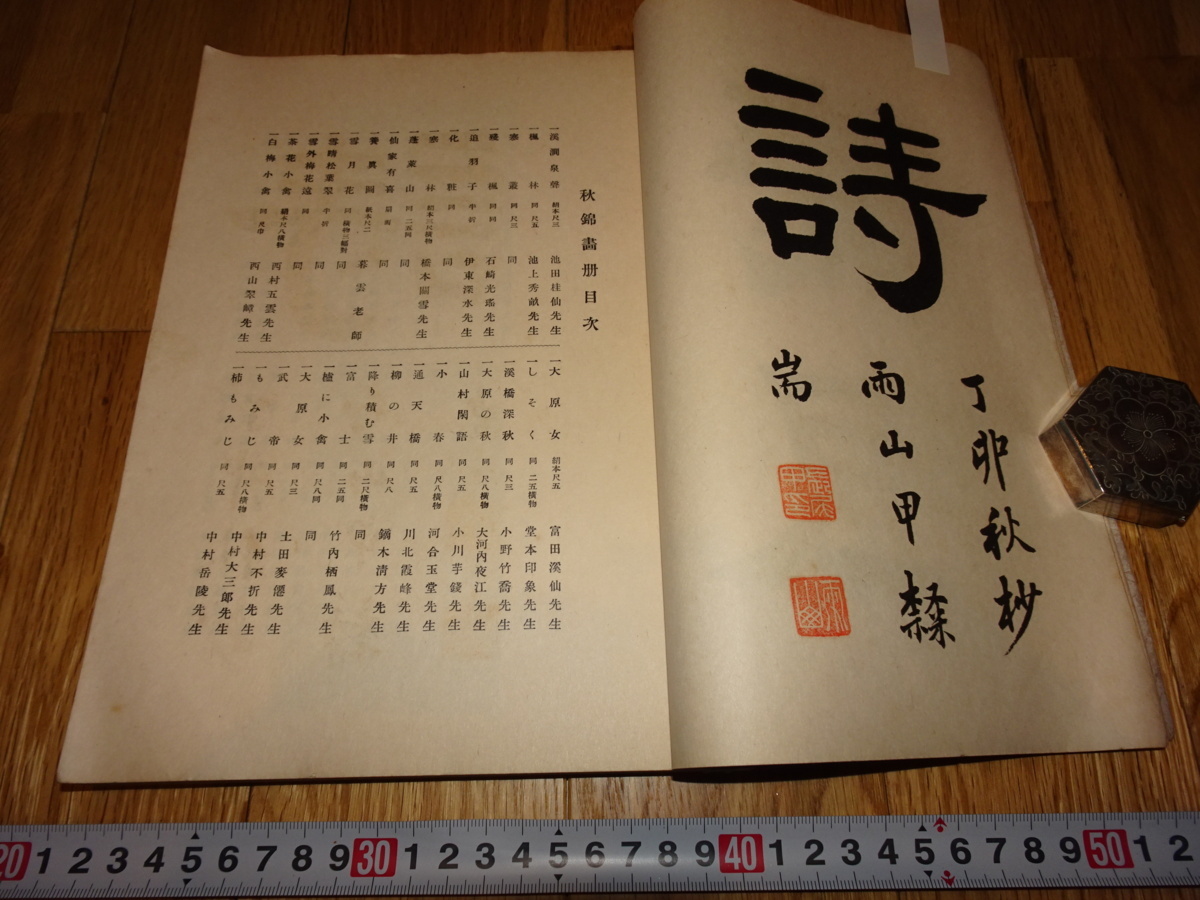 詩
丁卯秋杪
雨山甲
耑
秋錦畫册目次
一溪澗泉聲 絹本尺三 池田桂仙先生
一楓林 同 尺五 池上秀畝先生
一寒叢 同 尺三 同
一楓 同 同 石崎光瑤先生
一追羽子 半折 伊東深水先生
一化粧 同 同
一寒林 絹本三尺橫物 橋本關雪先生
一蓬萊山 同 二五同 同
一仙家有喜 扇面 同
圖 紙本尺二 暮雲老師
一雪月花 同 橫物三幅對 同
一雪晴松葉翠 半折 同
一雪外梅花遠 同 同
一茶花小禽 絹本尺八橫物 西村五雲先生
一白梅小禽 同 尺巾 西山翠嶂先生
一大原女 絹本尺五 富田溪仙先生
一しそく 同 二五橫物 堂本印象先生
一溪橋深秋 同 尺三 小野竹喬先生
一大原の秋 同 尺八橫物 大河內夜江先生
一山村閑語 同 尺五 小川芋錢先生
一小春 同 尺八橫物 河合玉堂先生
一通天橋 同 尺五 川北霞峰先生
一柳の井 同 尺八 鏑木淸方先生
一降り積む雪 同 二尺橫物 同
一富士 同 二五同 竹內栖鳳先生
一櫨に小禽 同 尺八同 同
一大原女 同 尺三 土田麥僊先生
一武帝 同 尺五 中村不折先生
一もみじ 同 尺八橫物 中村大三郎先生
一柿もみじ 同 尺五 中村岳陵先生
20 1 2 3 4 5 6 7 8 9 30 1 2 3 4 5 6 7 8 9 40 1 2 3 4 5 6 7 8 9 50 1 2